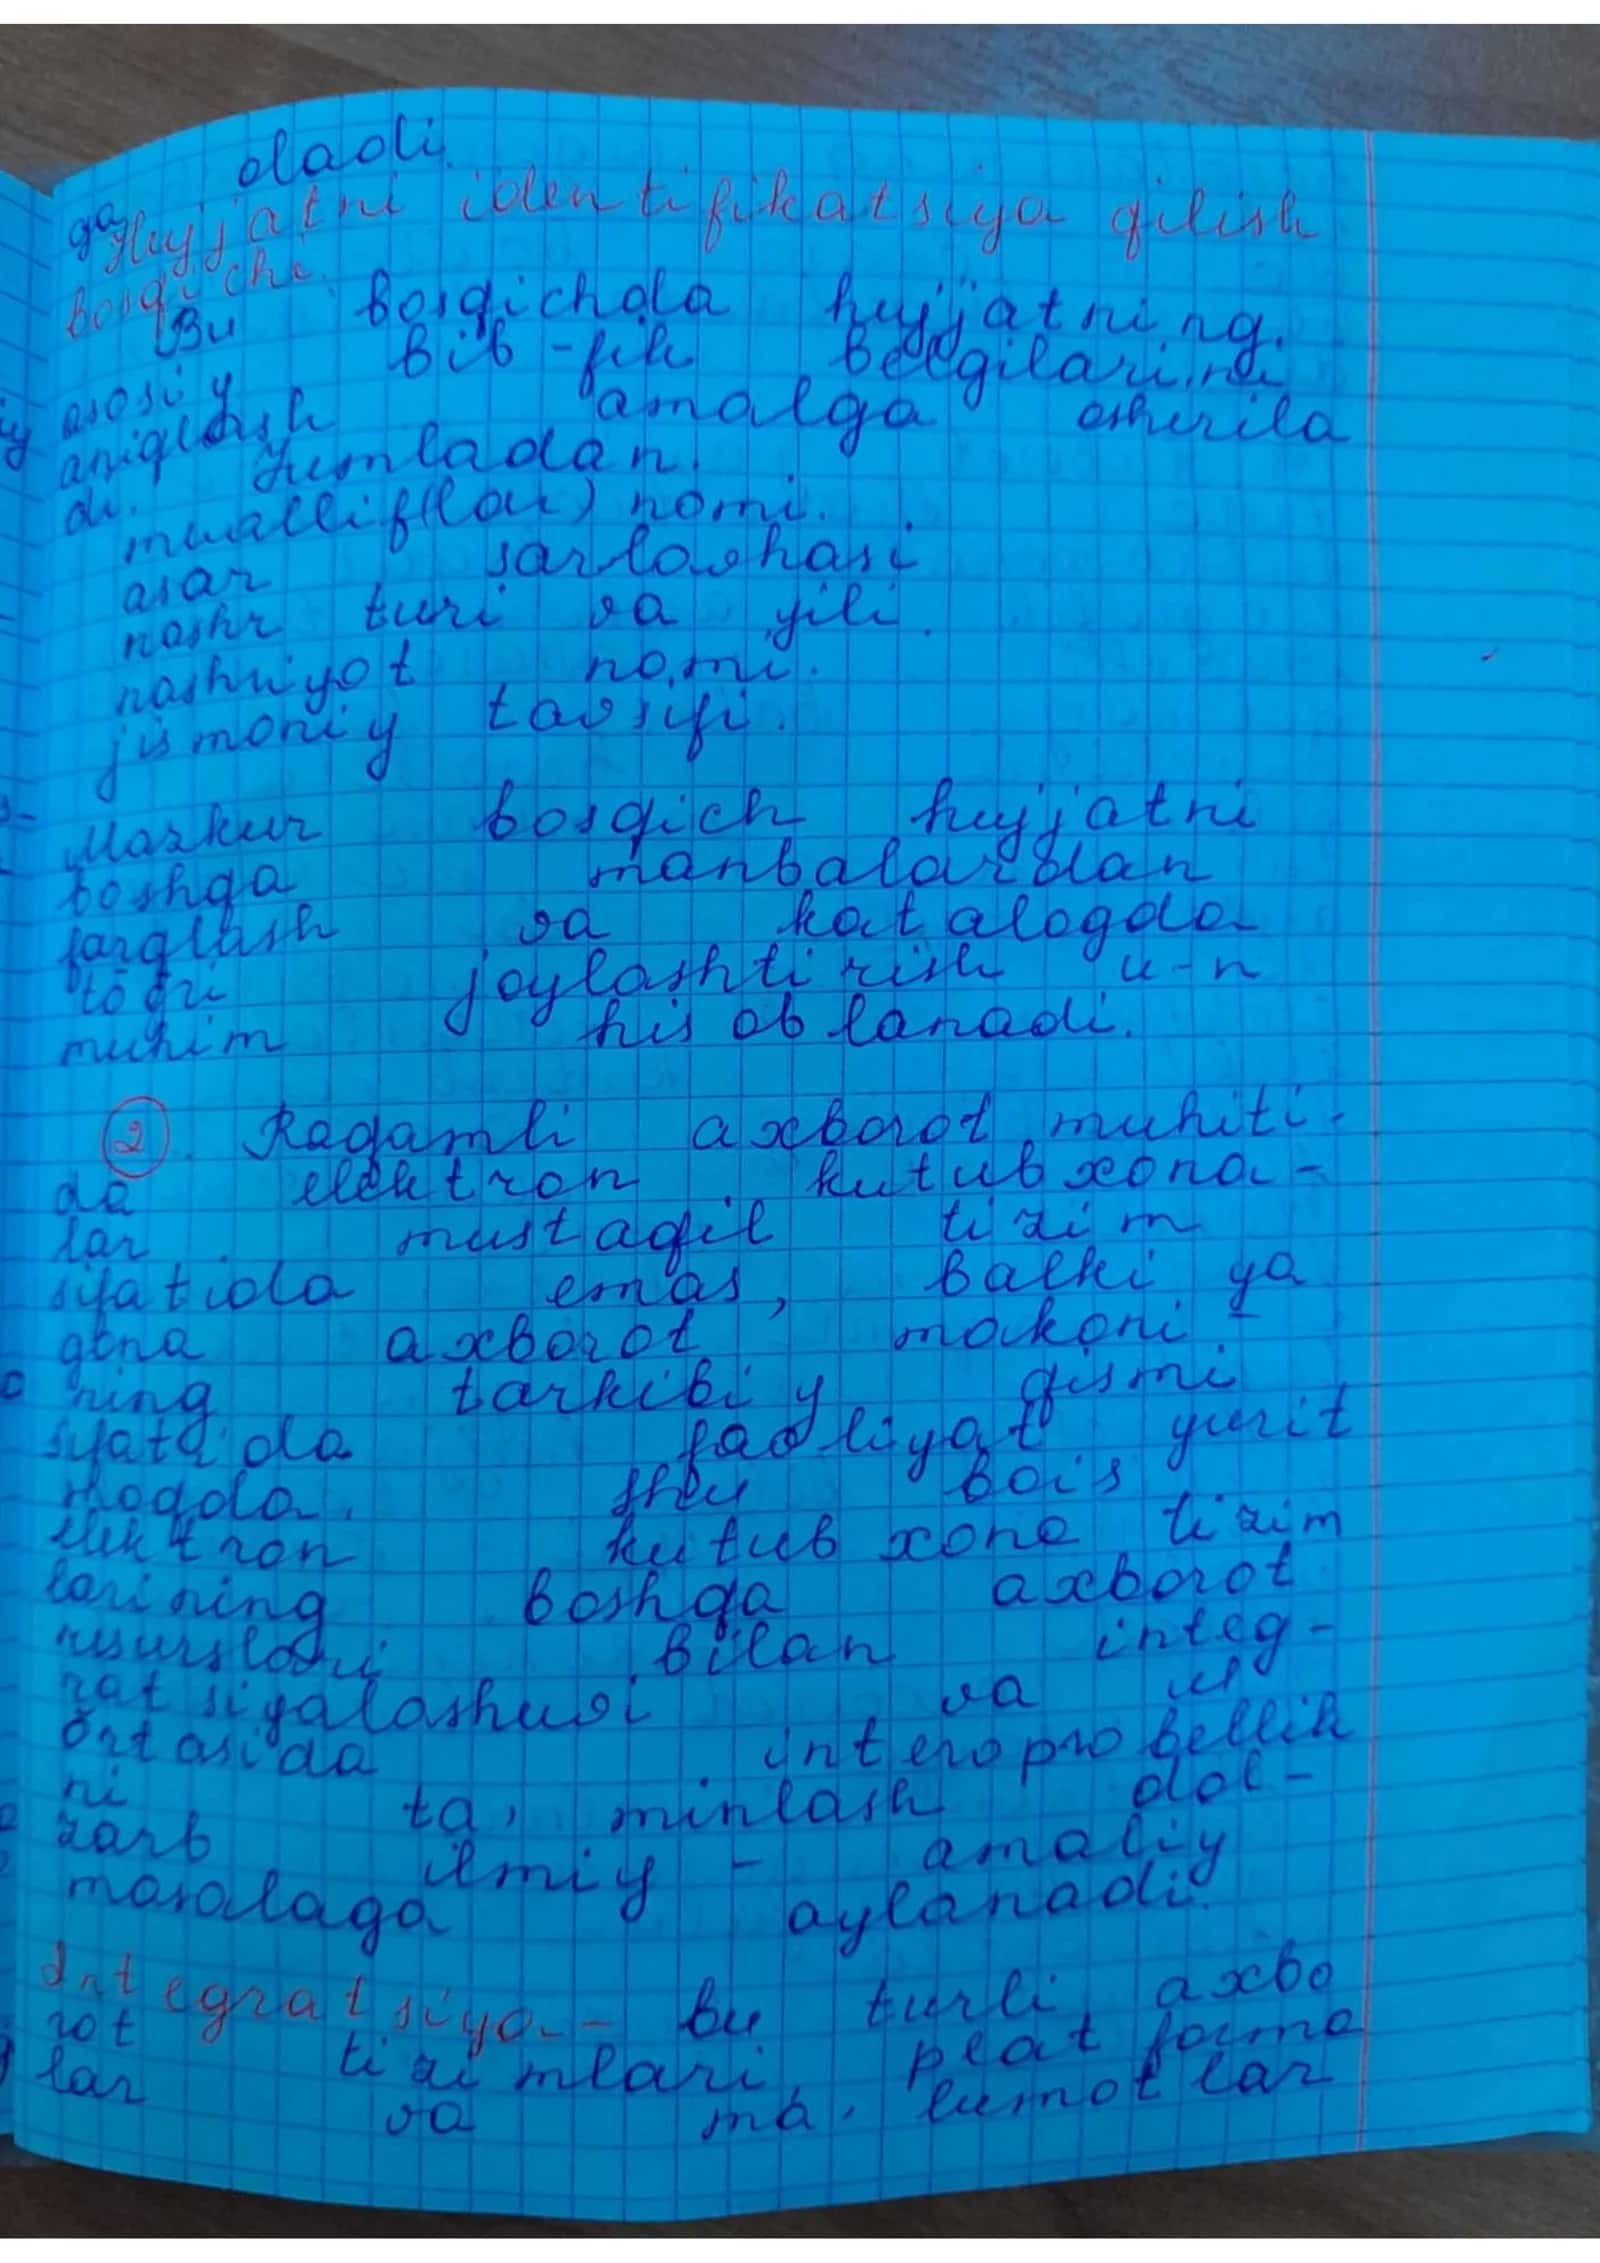 ga oladi.
Hujjatni identifikatsiya qilish
bosqichi.
Bu bosqichda hujjatning
asosiy bib-fik belgilarini
aniqlash amalga oshirila
di. Jumladan,
muallif(lar) nomi.
asar sarlavhasi
nashr turi va yili.
nashriyot nomi.
jismoniy tavsifi.
Mazkur bosqich hujjatni
boshqa manbalardan
farqlash va katalogda
to'g'ri joylashtirish u-n
muhim hisoblanadi.
2. Raqamli axborot muhiti-
da elektron kutubxona-
lar mustaqil tizim
sifatida emas, balki ya
gona axborot makoni-
ning tarkibiy qismi
sifatida faoliyat yurit
moqda. Shu bois
elektron kutubxona tizim
larining boshqa axborot
resurslari bilan integ-
ratsiyalashuvi va ul
o'rtasida interoprobellik
ni ta'minlash dol-
zarb ilmiy - amaliy
masalaga aylanadi.
Integratsiya - bu turli axbo
rot tizimlari, platforma
lar va ma'lumotlar